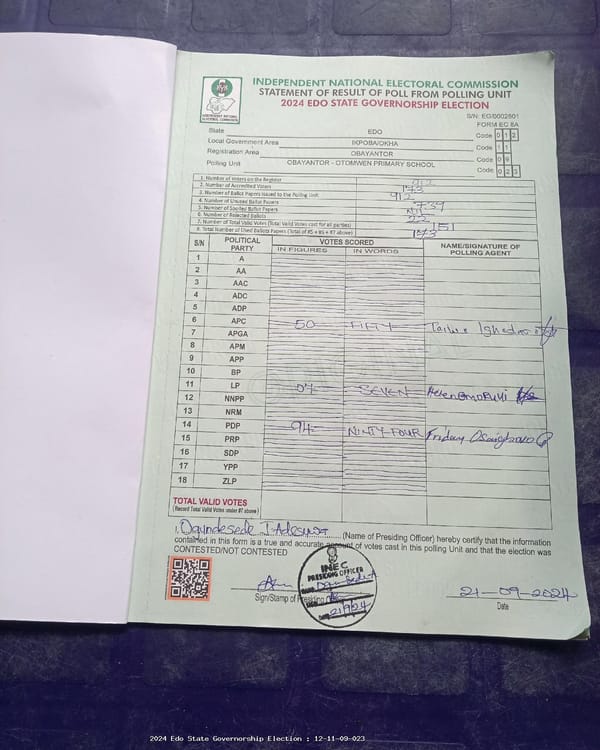 INDEPENDENT NATIONAL ELECTORAL COMMISSION
STATEMENT OF RESULT OF POLL FROM POLLING UNIT
2024 EDO STATE GOVERNORSHIP ELECTION
INDEPENDENT NATIONAL ELECTORAL COMMISSION
S/N: EG/0002801
FORM EC 8A
State EDO Code 0 1 2
Local Government Area IKPOBA/OKHA Code 1 1
Registration Area OBAYANTOR Code 0 9
Polling Unit OBAYANTOR - OTOMWEN PRIMARY SCHOOL Code 0 2 3
1. Number of Voters on the Register 912
2. Number of Accredited Voters 173
3. Number of Ballot Papers Issued to the Polling Unit 912
4. Number of Unused Ballot Papers 739
5. Number of Spoiled Ballot Papers Nil
6. Number of Rejected Ballots 22
7. Number of Total Valid Votes (Total Valid Votes cast for all parties) 151
8. Total Number of Used Ballots Papers (Total of #5 + #6 + #7 above) 173
S/N POLITICAL PARTY VOTES SCORED NAME/SIGNATURE OF POLLING AGENT
IN FIGURES IN WORDS
1 A
2 AA
3 AAC
4 ADC
5 ADP
6 APC 50 FIFTY
7 APGA
8 APM
9 APP
10 BP
11 LP 07 SEVEN Helen
12 NNPP
13 NRM
14 PDP 94 NINTY FOUR Friday
15 PRP
16 SDP
17 YPP
18 ZLP
TOTAL VALID VOTES
(Record Total Valid Votes under #7 above)
I, Ogundesede J. Adesuwa (Name of Presiding Officer) hereby certify that the information
contained in this form is a true and accurate account of votes cast in this polling Unit and that the election was
CONTESTED/NOT CONTESTED
INEC
PRESIDING OFFICER
21/9/24
Sign/Stamp of Presiding
21-09-2024
Date
2024 Edo State Governorship Election : 12-11-09-023